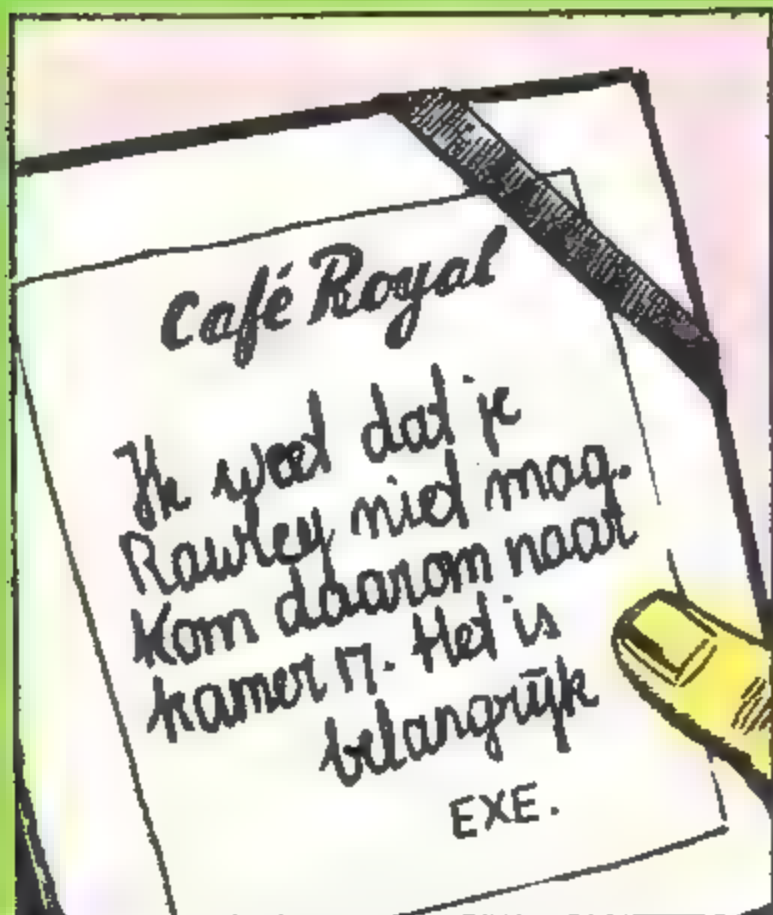 Café Royal
Ik weet dat je
Rawley niet mag.
Kom daarom naar
kamer 17. Het is
belangrijk
EXE.